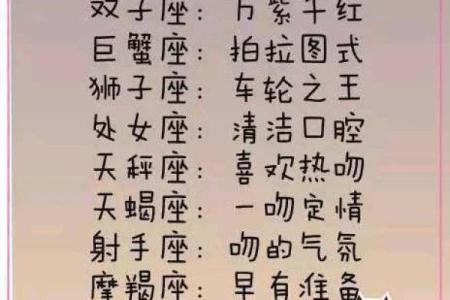 双子座：万紫千红
巨蟹座：拍拉图式
狮子座：车轮之王
处女座：清洁口腔
天秤座：喜欢热吻
天蝎座：一吻定情
射手座：吻的气氛
摩羯座：早有准备